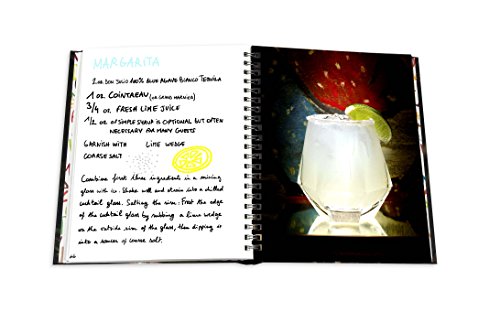 MARGARITA
2 oz DON JULIO 100% BLUE AGAVE BLANCO TEQUILA
1 oz. COINTREAU (OR GRAND MARNIER)
3/4 oz. FRESH LIME JUICE
1/2 oz OF SIMPLE SYRUP IS OPTIONAL BUT OFTEN
NECESSARY FOR MANY GUESTS
GARNISH WITH LIME WEDGE
COARSE SALT
Combine first three ingredients in a mixing
glass with ice. Shake well and strain into a chilled
cocktail glass. Salting the rim: Frost the edge
of the cocktail glass by rubbing a lime wedge
on the outside rim of the glass, then dipping it
into a saucer of coarse salt.